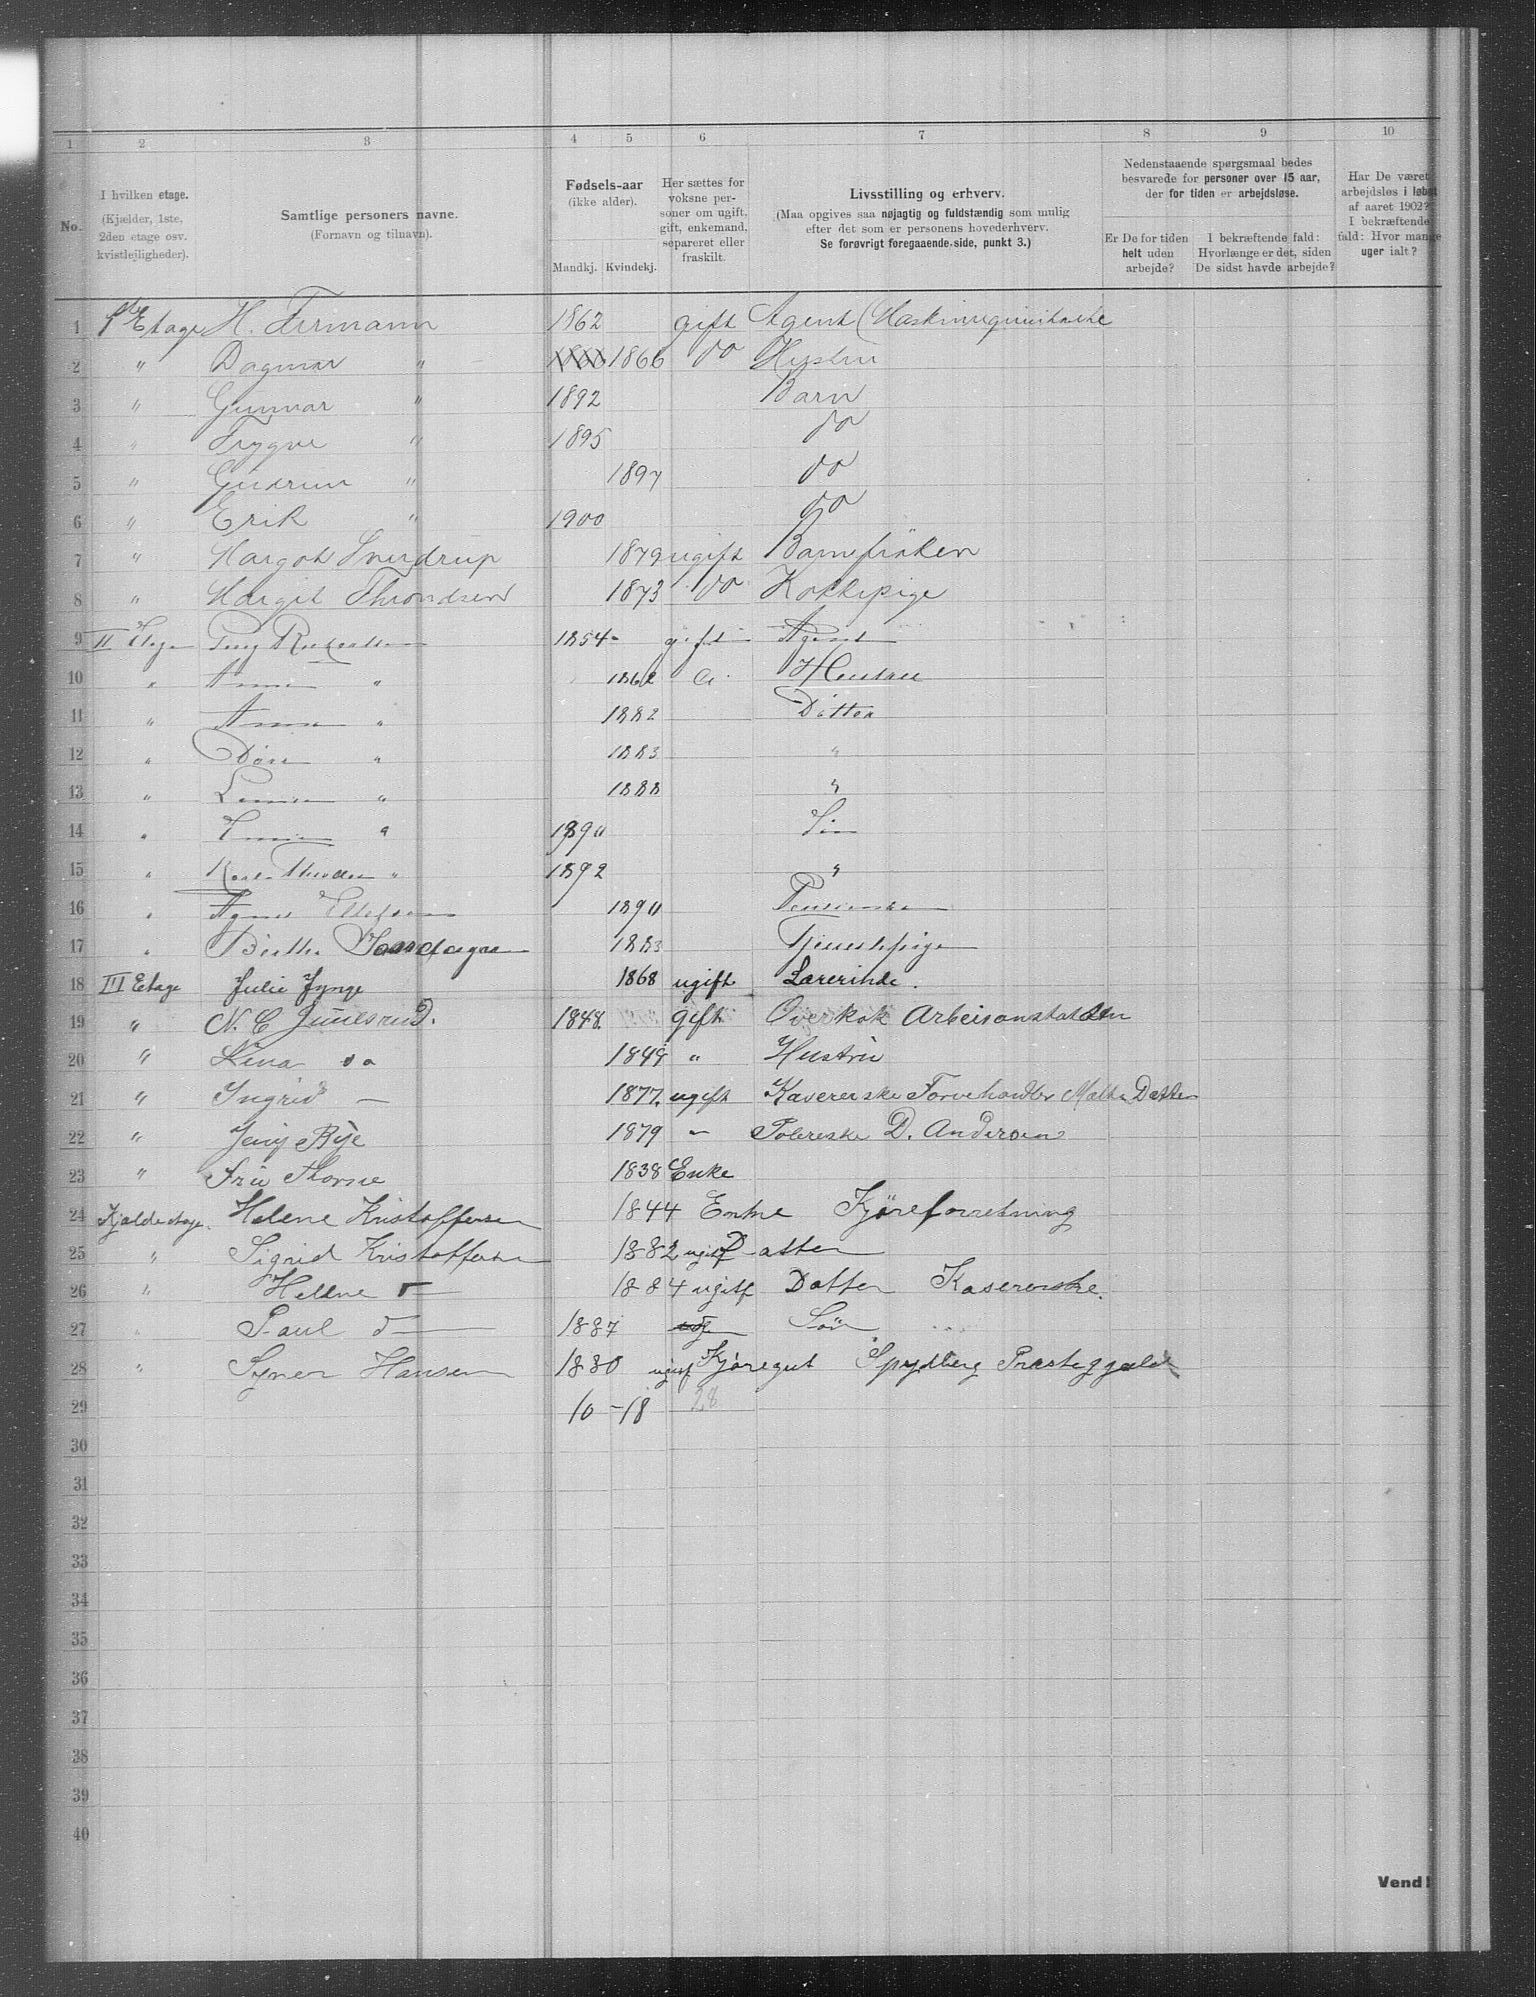 1 2 3 4 5 6 7 8 9 10
No.
I hvilken etage.
(Kjælder, 1ste, 2den etage osv. kvistlejligheder).
Samtlige personers navne.
(Fornavn og tilnavn).
Fødsels-aar
(ikke alder).
Mandkj. Kvindekj.
Her sættes for voksne personer om ugift, gift, enkemand, separeret eller fraskilt.
Livsstilling og erhverv.
(Maa opgives saa nøjagtig og fuldstændig som mulig efter det som er personens hovederhverv.
Se forøvrigt foregaaende side, punkt 3.)
Nedenstaaende spørgsmaal bedes besvarede for personer over 15 aar, der for tiden er arbejdsløse.
Er De for tiden helt uden arbejde?
I bekræftende fald: Hvorlænge er det, siden De sidst havde arbejde?
Har De været arbejdsløs i løbet af aaret 1902? I bekræftende fald: Hvor mange uger ialt?
1 1ste Etage H. Fermann 1862 gift Agent
2 " Dagmar " 1866 do Hustru
3 " Gunnar " 1892 Barn
4 " Trygve " 1895 do
5 " Gudrun " 1897 do
6 " Erik " 1900 do
7 " Margot Sverdrup 1879 ugift Barnefröken
8 " Margit Throndsen 1873 do Kokkepige
9 II Etage 1854 gift Agent
10 " Anna " 1862 Hustru
11 " Anna " 1882 Datter
12 " " 1883 "
13 " " 1888 "
14 " " 1890 Sön
15 " " 1892 "
16 " Agnes Ellefsen 1890
17 " 1883 Tjenestepige
18 III Etage Julie Jynge 1868 ugift Lærerinde.
19 " N. C. Juuesrud. 1848. gift Overkok Arbeisanstalden
20 " Lina do 1849 " Hustru
21 " Ingrid — 1877. ugift Kasererske Farvehandler Datter
22 " Jeny Bye 1879 " Polereske D. Andersen
23 " Fru Thorsne 1838 Enke
24 Kjælderetage. Helene Kristoffersen 1844 Enke Kjöreforretning
25 " Sigrid Kristoffersen 1882 ugift Datter
26 " Helene 1884 ugift Datter Kasererske.
27 " Paul 1887 Sön
28 " Syver Hansen 1880 ugift Kjöregut Spydberg Præsteggjæld
29 10 - 18 28
30
31
32
33
34
35
36
37
38
39
40
Vend!